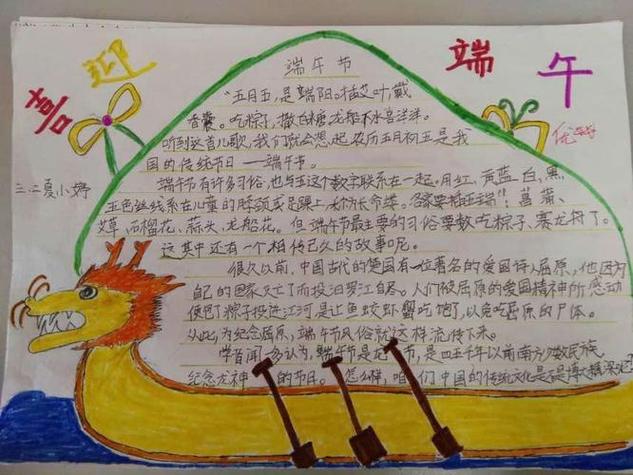 喜迎端午
优
三.二夏小婷
端午节
“五月五,是端阳。插艾叶,戴
香囊。吃粽子,撒白糖,龙船下水喜洋洋。
听到这首儿歌,我们就会想起农历五月初五是我
国的传统节日——端午节。
端午节有许多习俗,也与五这个数字联系在一起。用红、黄蓝、白、黑,
五色丝线系在儿童的脖颈或足踝上,称为长命缕。各家要插五端”:菖蒲、
艾草、石榴花、蒜头、龙船花。但端午节最主要的习俗要数吃粽子、赛龙舟了。
这其中还有一个相传已久的故事呢。
很久以前,中国古代的楚国有一位著名的爱国诗人屈原,他因为
自己的国家灭亡了而投汨罗江自尽。人们被屈原的爱国精神所感动
便把粽子投进江河是让鱼蛟虾蟹吃饱了,以免吃屈原的尸体。
从此,为纪念屈原,端午节风俗就这样流传下来。
学者闻一多认为,端午节是龙 节,是四五千年以前南方少数民族
纪念龙神 的节日。怎么样,咱们中国的传统文化是不是博大精深呢